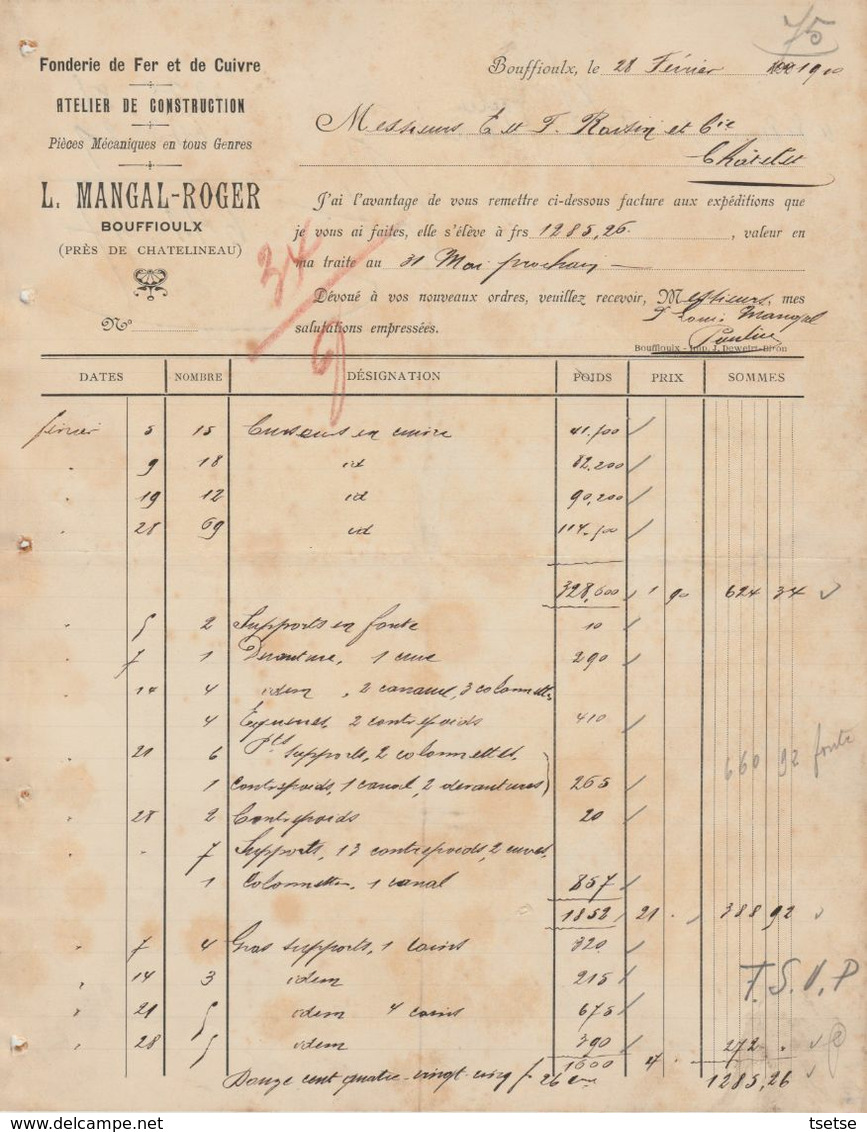 75
Fonderie de Fer et de Cuivre
ATELIER DE CONSTRUCTION
Pièces Mécaniques en tous Genres
L. MANGAL-ROGER
BOUFFIOULX
(PRÈS DE CHATELINEAU)
Nº
Bouffioulx, le 28 Février 1910
Messieurs E et F. et Cie
Châtelet
J'ai l'avantage de vous remettre ci-dessous facture aux expéditions que
je vous ai faites, elle s'élève à frs 1285,26 , valeur en
ma traite au 31 Mai prochain
Dévoué à vos nouveaux ordres, veuillez recevoir, Messieurs, mes
salutations empressées.
Louis Mangal
Bouffioulx - Imp. J. Dewelst-Biron
DATES NOMBRE DÉSIGNATION POIDS PRIX SOMMES
février 5 15 en cuivre 41.700
" 9 18 id 82.200
" 19 12 id 90,200
" 28 69 id 114.500
328,600 1 90 624 34
" 5 2 Supports en fonte 10
7 1 1 cuve 290
" 14 4 idem, 2 canaux, 3 colonnettes
4 Equerres, 2 contrepoids 410
" 21 6 Pts supports, 2 colonnettes,
1 contrepoids, 1 canal, 2 265
660 92 fonte
" 28 2 Contrepoids 20
" - 7 Supports, 13 contrepoids, 2 cuves,
1 Colonnette, 1 canal 857
1852 21 . 388 92
" 7 4 Gros supports, 1 coins 320
" 14 3 idem 215
T.S.V.P
" 21 5 idem 4 coins 675
" 28 5 idem 390 272 .
1600 17 .
Douze cent quatre-vingt-cinq f 26 cmes 1285,26
www.delcampe.net
tsetse